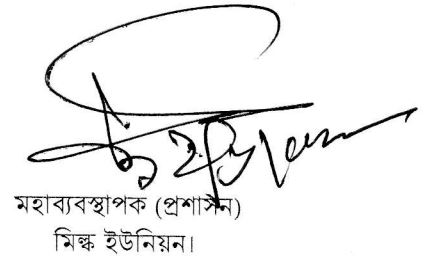 মহাব্যবস্থাপক (প্রশাসন)
মিল্ক ইউনিয়ন।